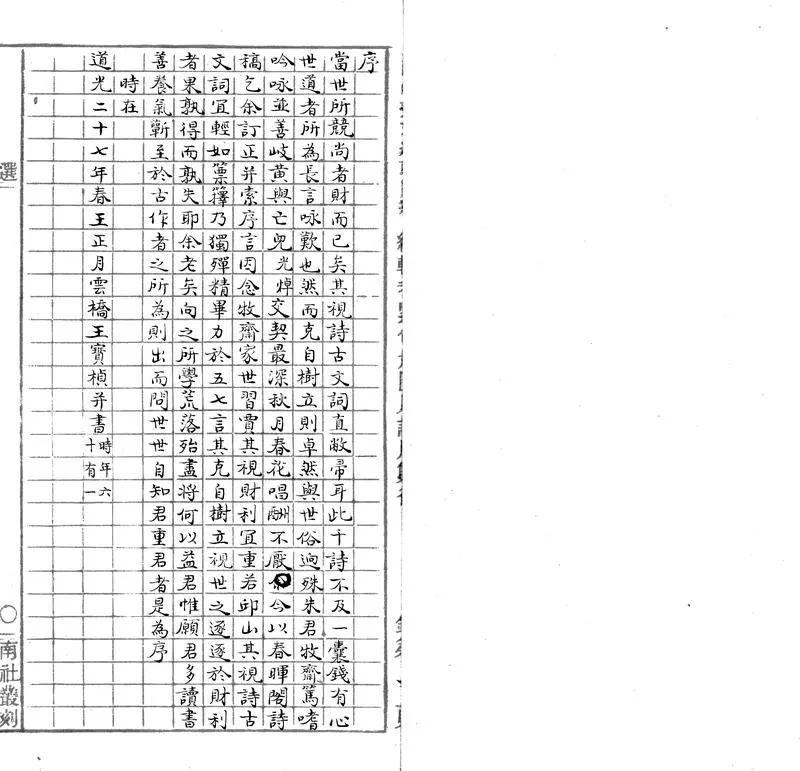 序
當世所競尚者財而已矣其視詩古文詞直敝帚耳此千詩不及一囊錢有心
世道者所為長言咏歎也然而克自樹立則卓然與世俗逈殊朱君牧齋篤嗜
吟咏並善岐黃與亡兒光焯交契最深秋月春花唱酬不厭今以春暉閣詩
稿乞余訂正并索序言因念牧齋家世習賈其視財利宜重若邱山其視詩古
文詞宜輕如籜乃獨殫精畢力於五七言其克自樹立視世之逐逐於財利
者果孰得而孰失耶余老矣向之所學荒落殆盡將何以益君惟願君多讀書
善養氣蘄至於古作者之所為則出而問世世自知君重君者是為序
時在
道光二十七年春王正月雲橋王寶楨并書時年六十有一
選
〇
南社叢刻